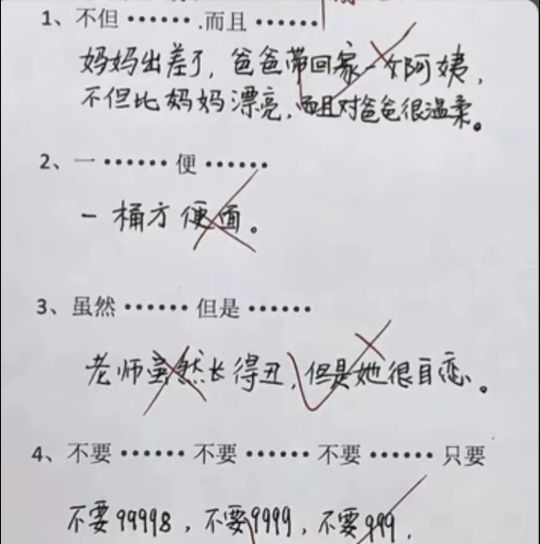 1、不但 ⋯⋯ .而且 ⋯⋯
妈妈出差了，爸爸带回家一女阿姨，
不但比妈妈漂亮，而且对爸爸很温柔。
2、一 ⋯⋯ 便 ⋯⋯
一桶方便面。
3、虽然 ⋯⋯ 但是 ⋯⋯
老师虽然长得丑，但是她很自恋。
4、不要 ⋯⋯ 不要 ⋯⋯ 不要 ⋯⋯ 只要
不要99998，不要9999，不要999，